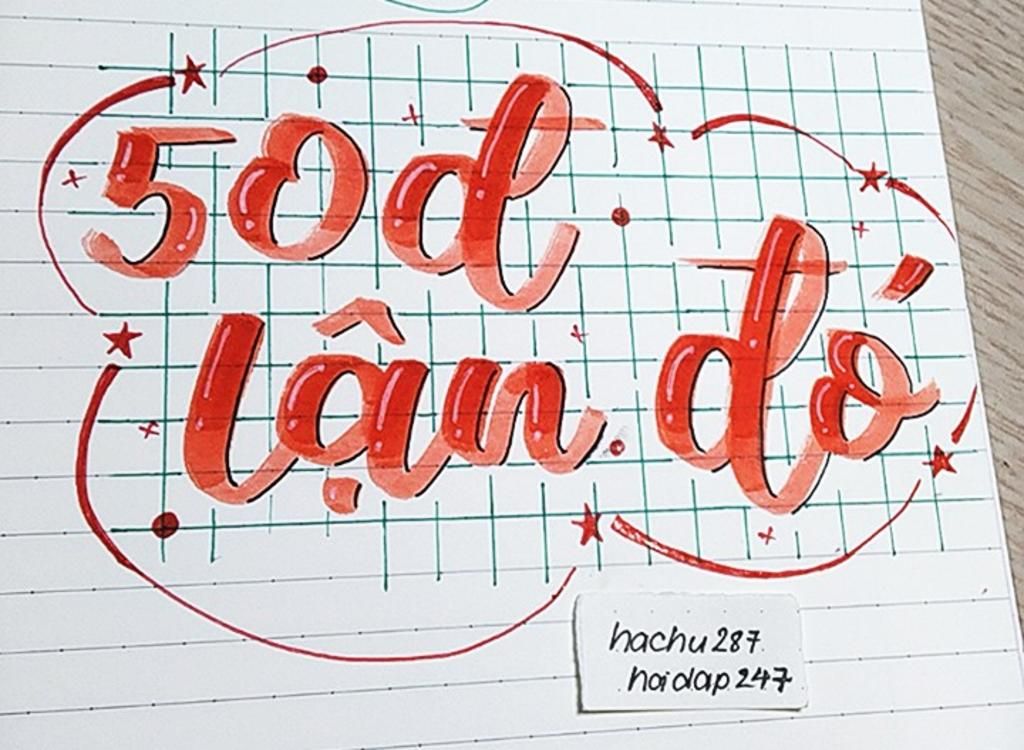 50đ
lận đó
hachu287
hoidap247